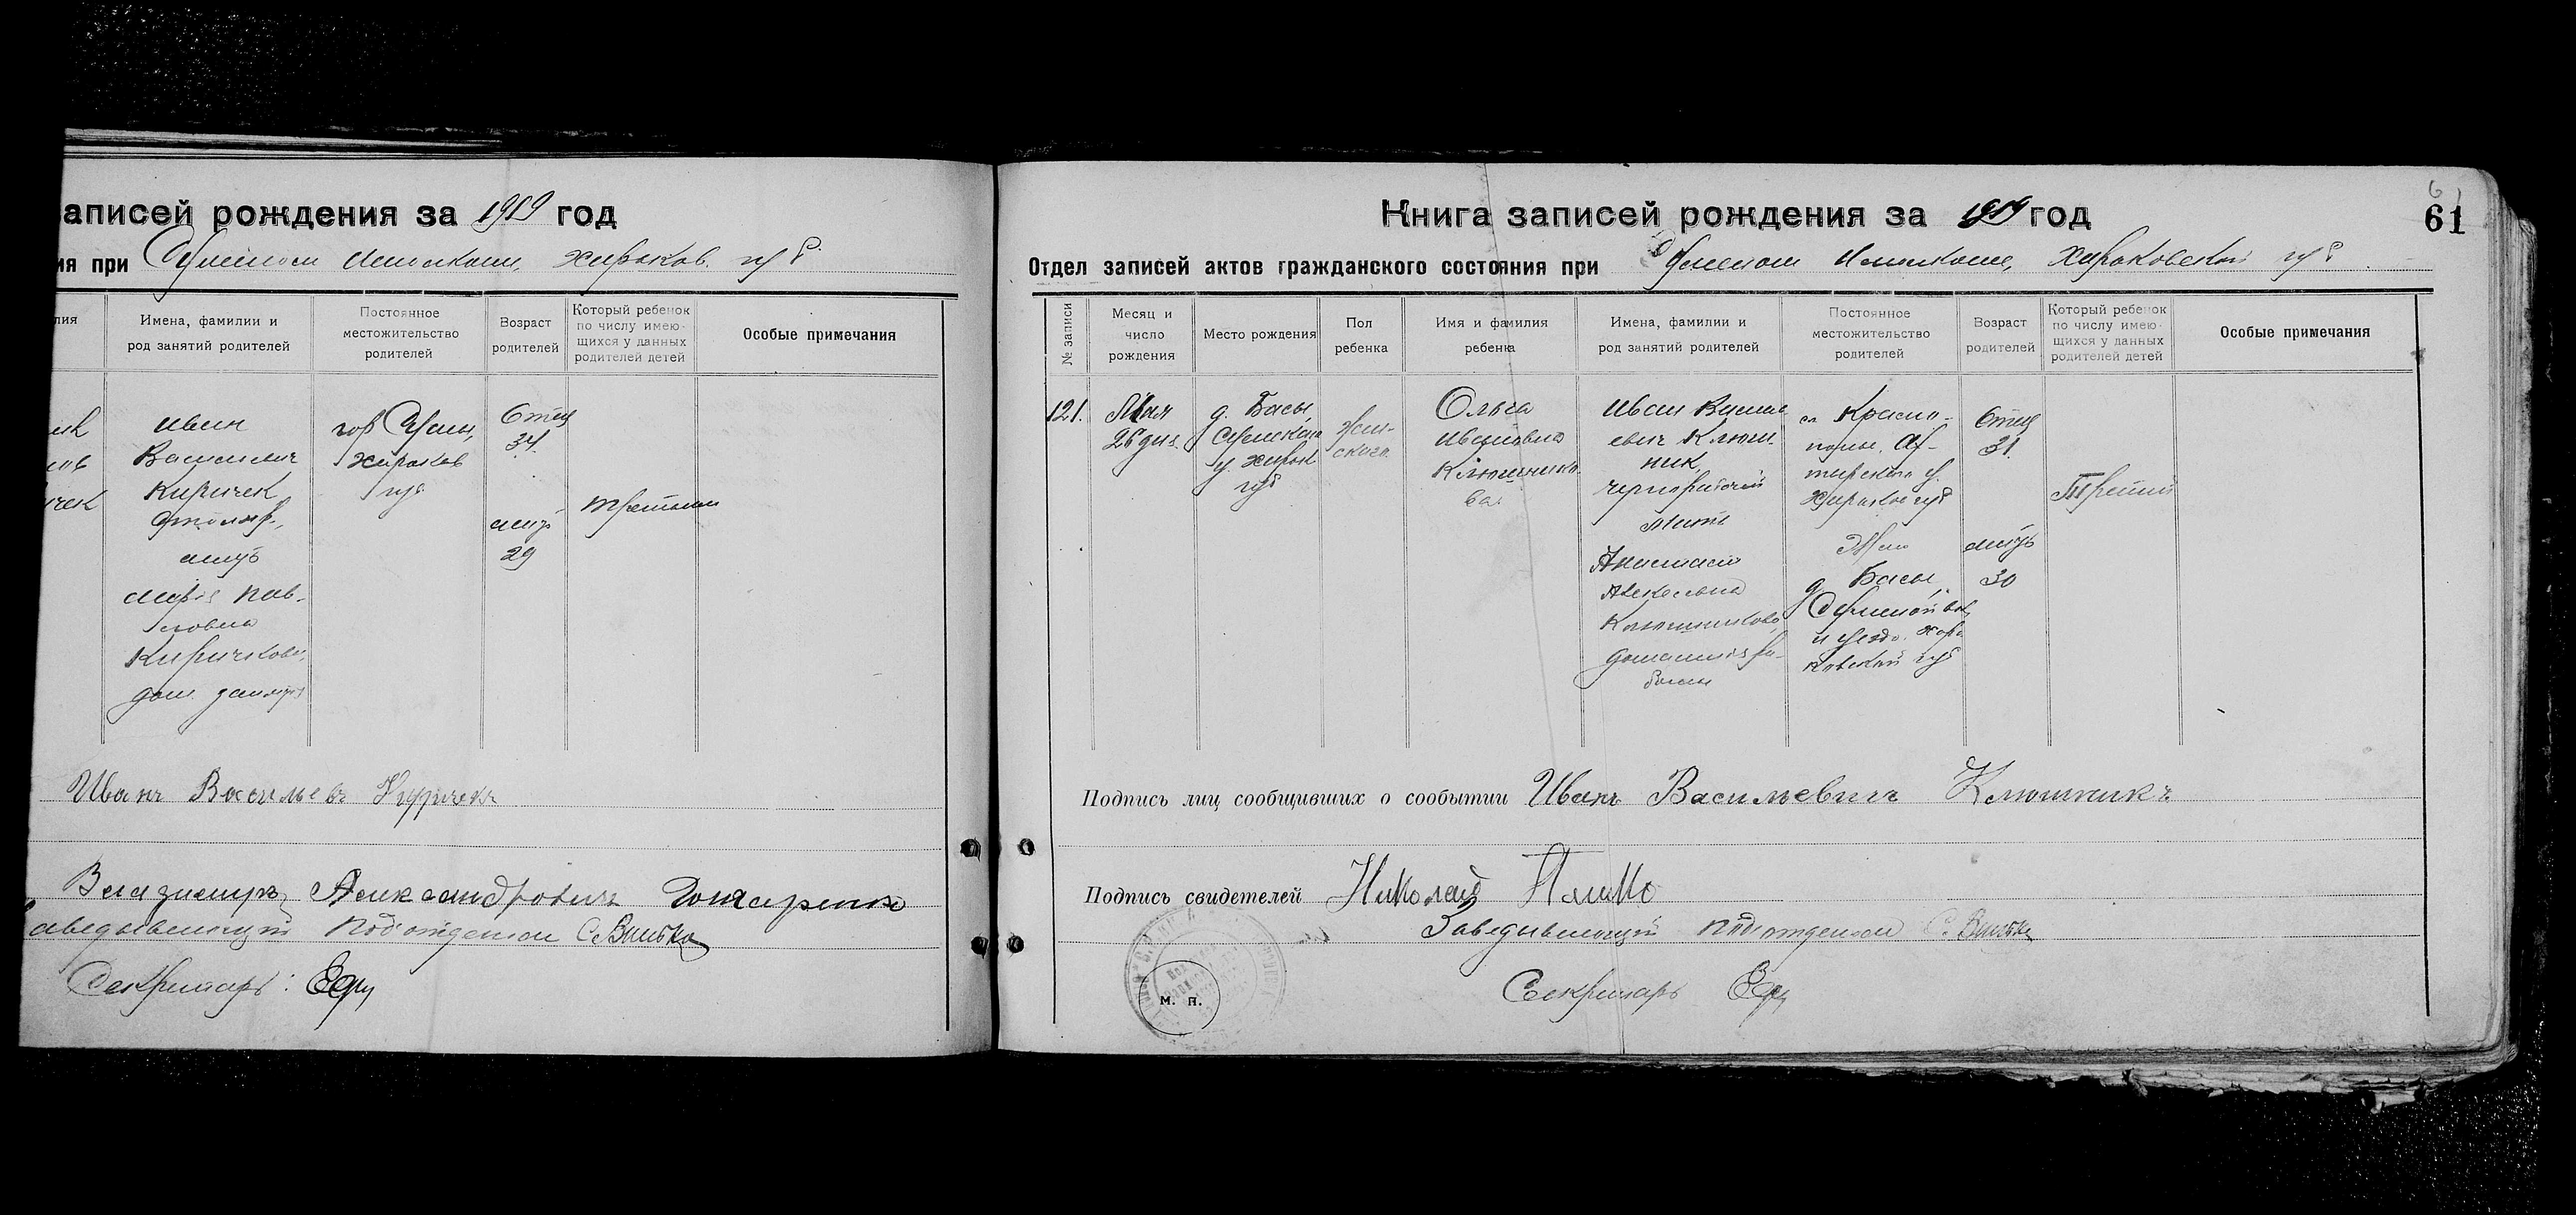 записей рождения за 1919 год
ия при Сумском Исполкоме, Харьков. губ.
лия
Имена, фамилии и
род занятий родителей
Постоянное
местожительство
родителей
Возраст
родителей
Который ребенок
по числу имею-
щихся у данных
родителей детей
Особые примечания
ичек
Иван
Васильевич
Киричек
столяр,
мать
Мария Пав-
ловна
Киричкова,
дом.
гор. Сумы,
Харьков
губ.
Отец
34.
мать
29
третьим
Иванъ Васильевъ Киричекъ
Владимиръ Александровичъ
аведывающий Подотделом
Секретарь:
61
Книга записей рождения за 1919 год
Отдел записей актов гражданского состояния при Сумском Исполкоме, Харьковской губ.
№ записи
Месяц и
число
рождения
Место рождения
Пол
ребенка
Имя и фамилия
ребенка
Имена, фамилии и
род занятий родителей
Постоянное
местожительство
родителей
Возраст
родителей
Который ребенок
по числу имею-
щихся у данных
родителей детей
Особые примечания
121.
Мая
26 дня
д. Басы,
Сумского
у. Харьк
губ
Жен-
ского.
Ольга
Ивановна
Ключнико-
ва.
Иван Василь
евич Ключ-
ник,
чернорабочий
Мать
Анастасия
Алексеевна
Ключникова,
домашняя ра-
бота
сл. Красно-
полье, Ах-
тырского у.
Харьков губ
Мать
д. Басы,
Сумской вол,
и уезда. Харь-
ковской губ
Отец
31.
мать
30
Третий
Подпись лиц сообщивших о сообытии Иванъ Васильевичъ Ключникъ
Подпись свидетелей Николай
Заведывающий Подотделом
Секретарь
м. п.